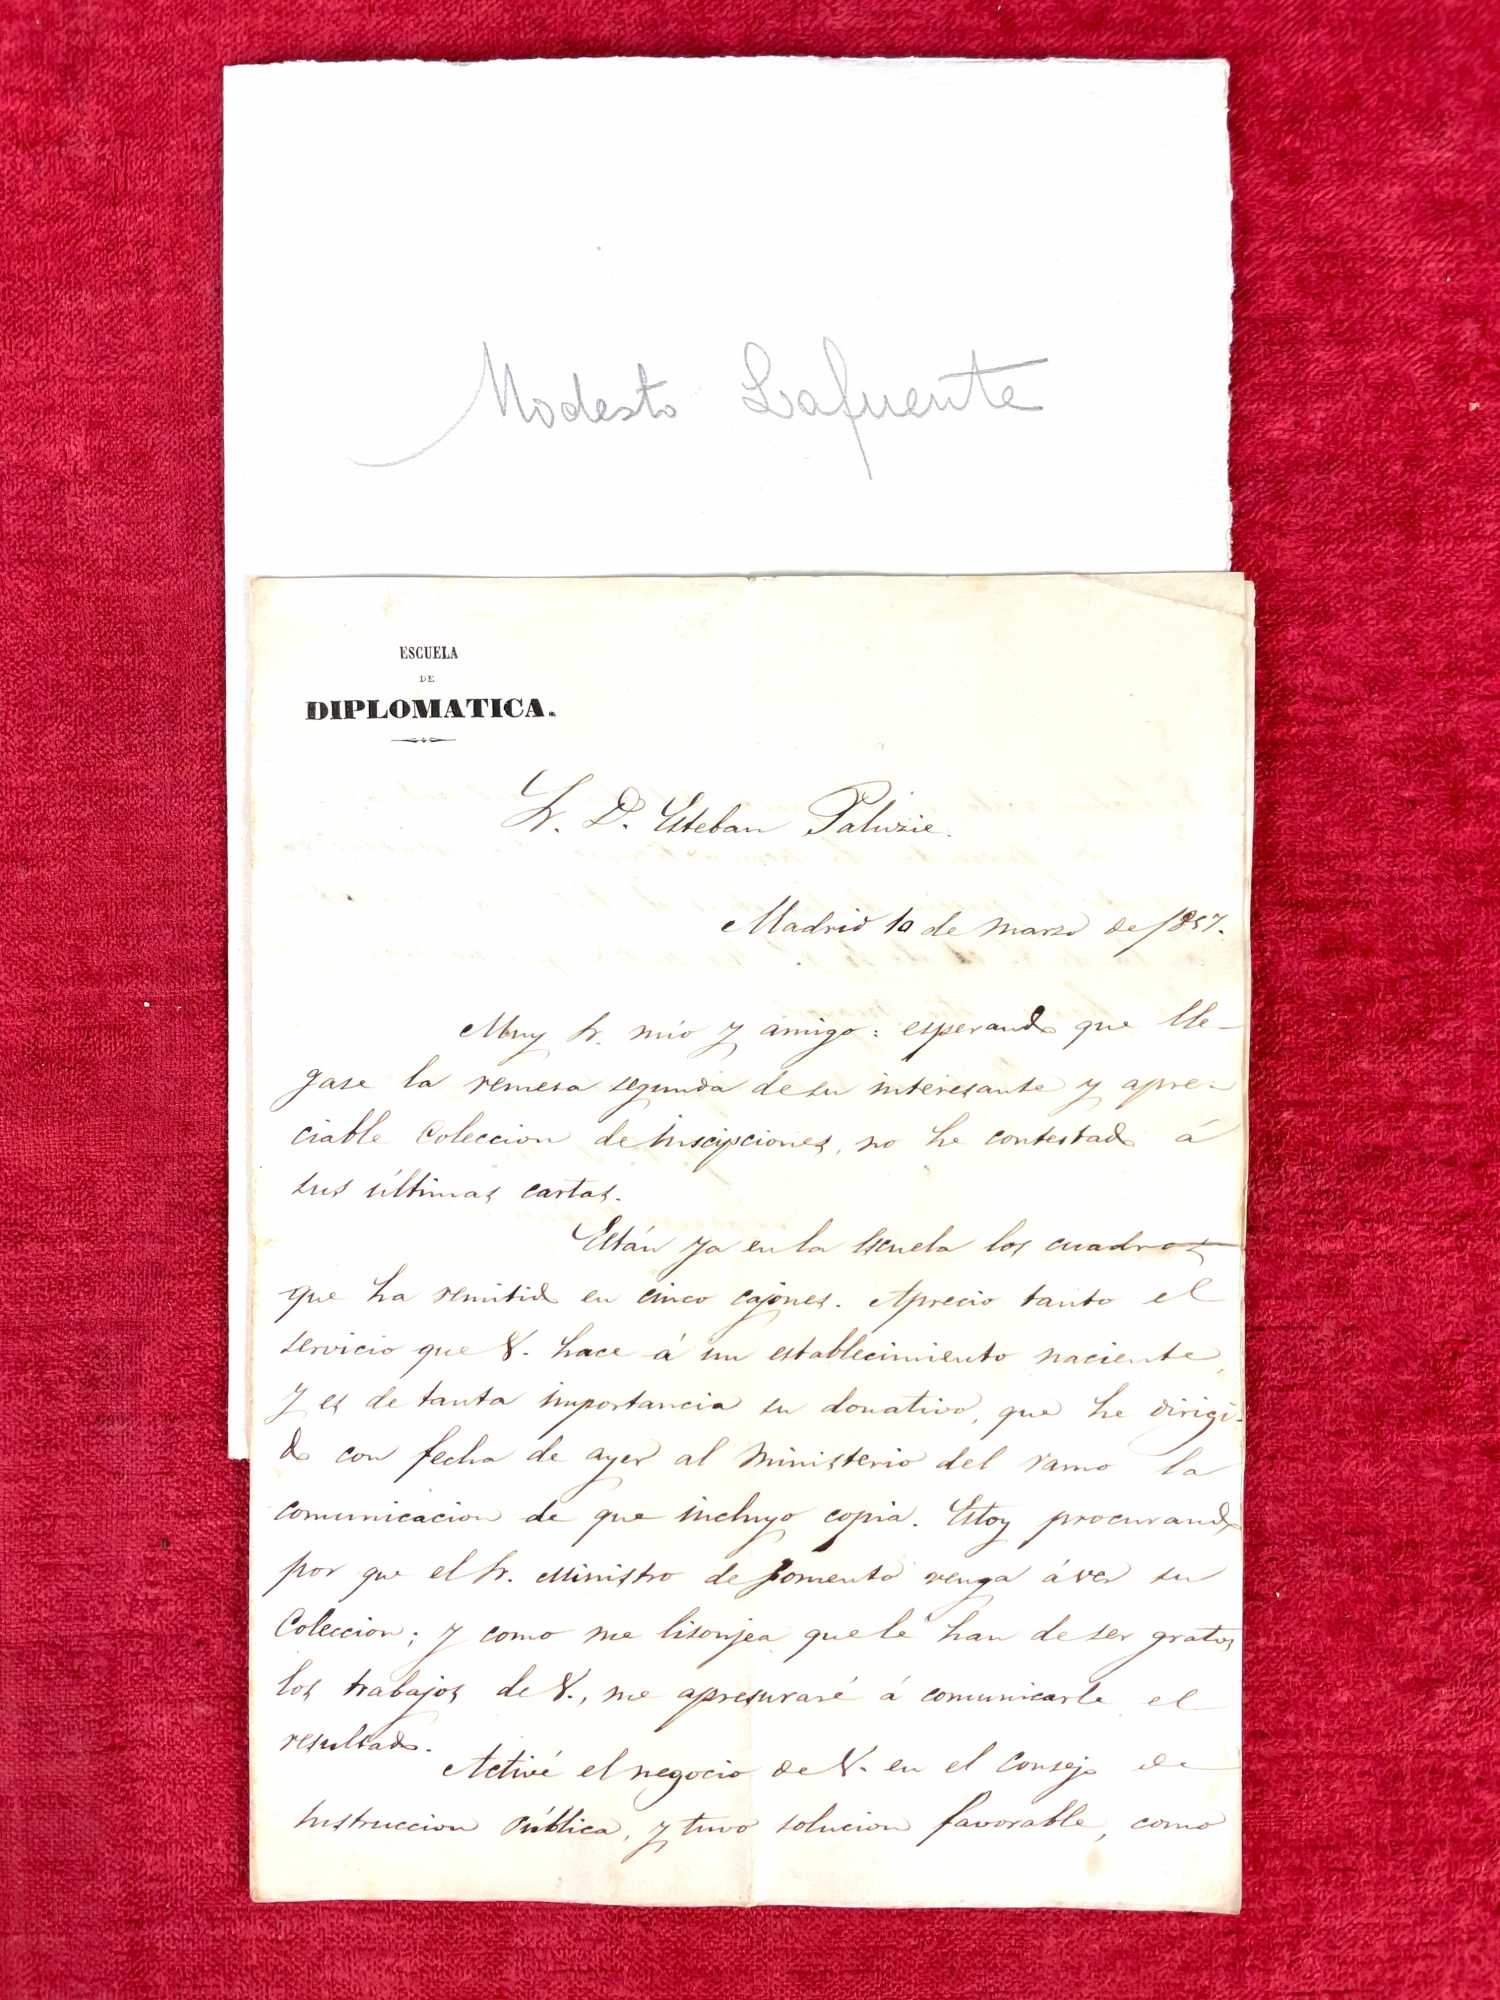 Modesto Lafuente
ESCUELA
DE
DIPLOMATICA.
Sr. D. Esteban Paluzie.
Madrid 10 de marzo de 1857.
Muy Sr. mío y amigo: esperando que lle-
gase la remesa segunda de su interesante y apre-
ciable Coleccion de Inscipciones, no he contestado á
sus últimas cartas.
Están ya en la Escuela los cuadros
que ha remitido en cinco cajones. Aprecio tanto el
servicio que V. hace á un establecimiento naciente,
y es de tanta importancia su donativo, que he dirigi-
do con fecha de ayer al Ministerio del ramo la
comunicacion de que incluyo copia. Estoy procurando
por que el Sr. Ministro de Fomento venga á ver su
Coleccion; y como me lisonjea que le han de ser gratos
los trabajos de V., me apresuraré á comunicarle el
resultado.
Activé el negocio de V. en el Consejo de
Instruccion Pública, y tuvo solucion favorable, como